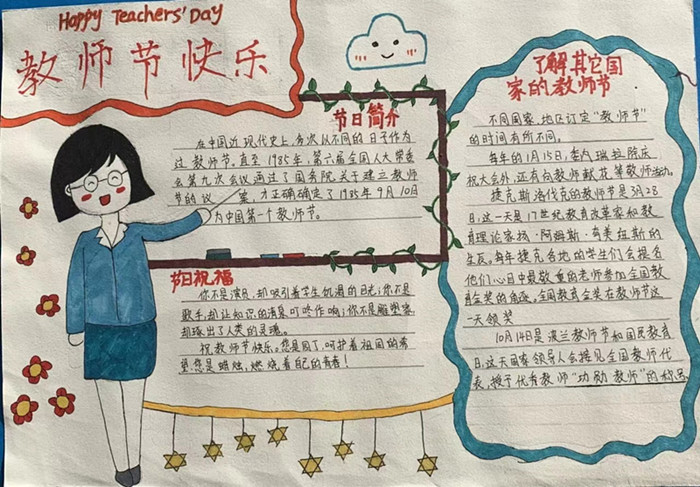 Happy Teachers' Day
教师节快乐
节日简介
在中国近现代史上,多次以不同的日子作为
过教师节。直至1985年,第六届全国人大常委
会第九次会议通过了国务院关于建立教师
节的议案,才正确确定了1985年9月10日
为中国第一个教师节。
节日祝福
你不是演员,却吸引着学生饥渴的目光;你不是
歌手,却让知识的清泉叮咚作响;你不是雕塑家,
却琢出了人类的灵魂。
祝教师节快乐。您是园丁,呵护着祖国的希
望,您是蜡烛,燃烧着自己的青春!
了解其它国
家的教师节
不同国家,地区订定“教师节”
的时间有所不同。
每年的1月15日,委内瑞拉除庆
祝大会外,还有向教师献花等敬师活动。
捷克斯洛伐克的教师节是3月28
日,这一天是17世纪教育改革家和教
育理论家扬·阿姆斯·夸美纽斯的
生辰,每年捷克各地的学生们会提名
他们心目中最敬重的老师参加全国教
育金奖的角逐,全国教育金奖在教师节这
一天领奖
10月14日是波兰教师节和国民教育
日,这天国家领导人会接见全国教师代
表,授予优秀教师“功勋教师”的称号